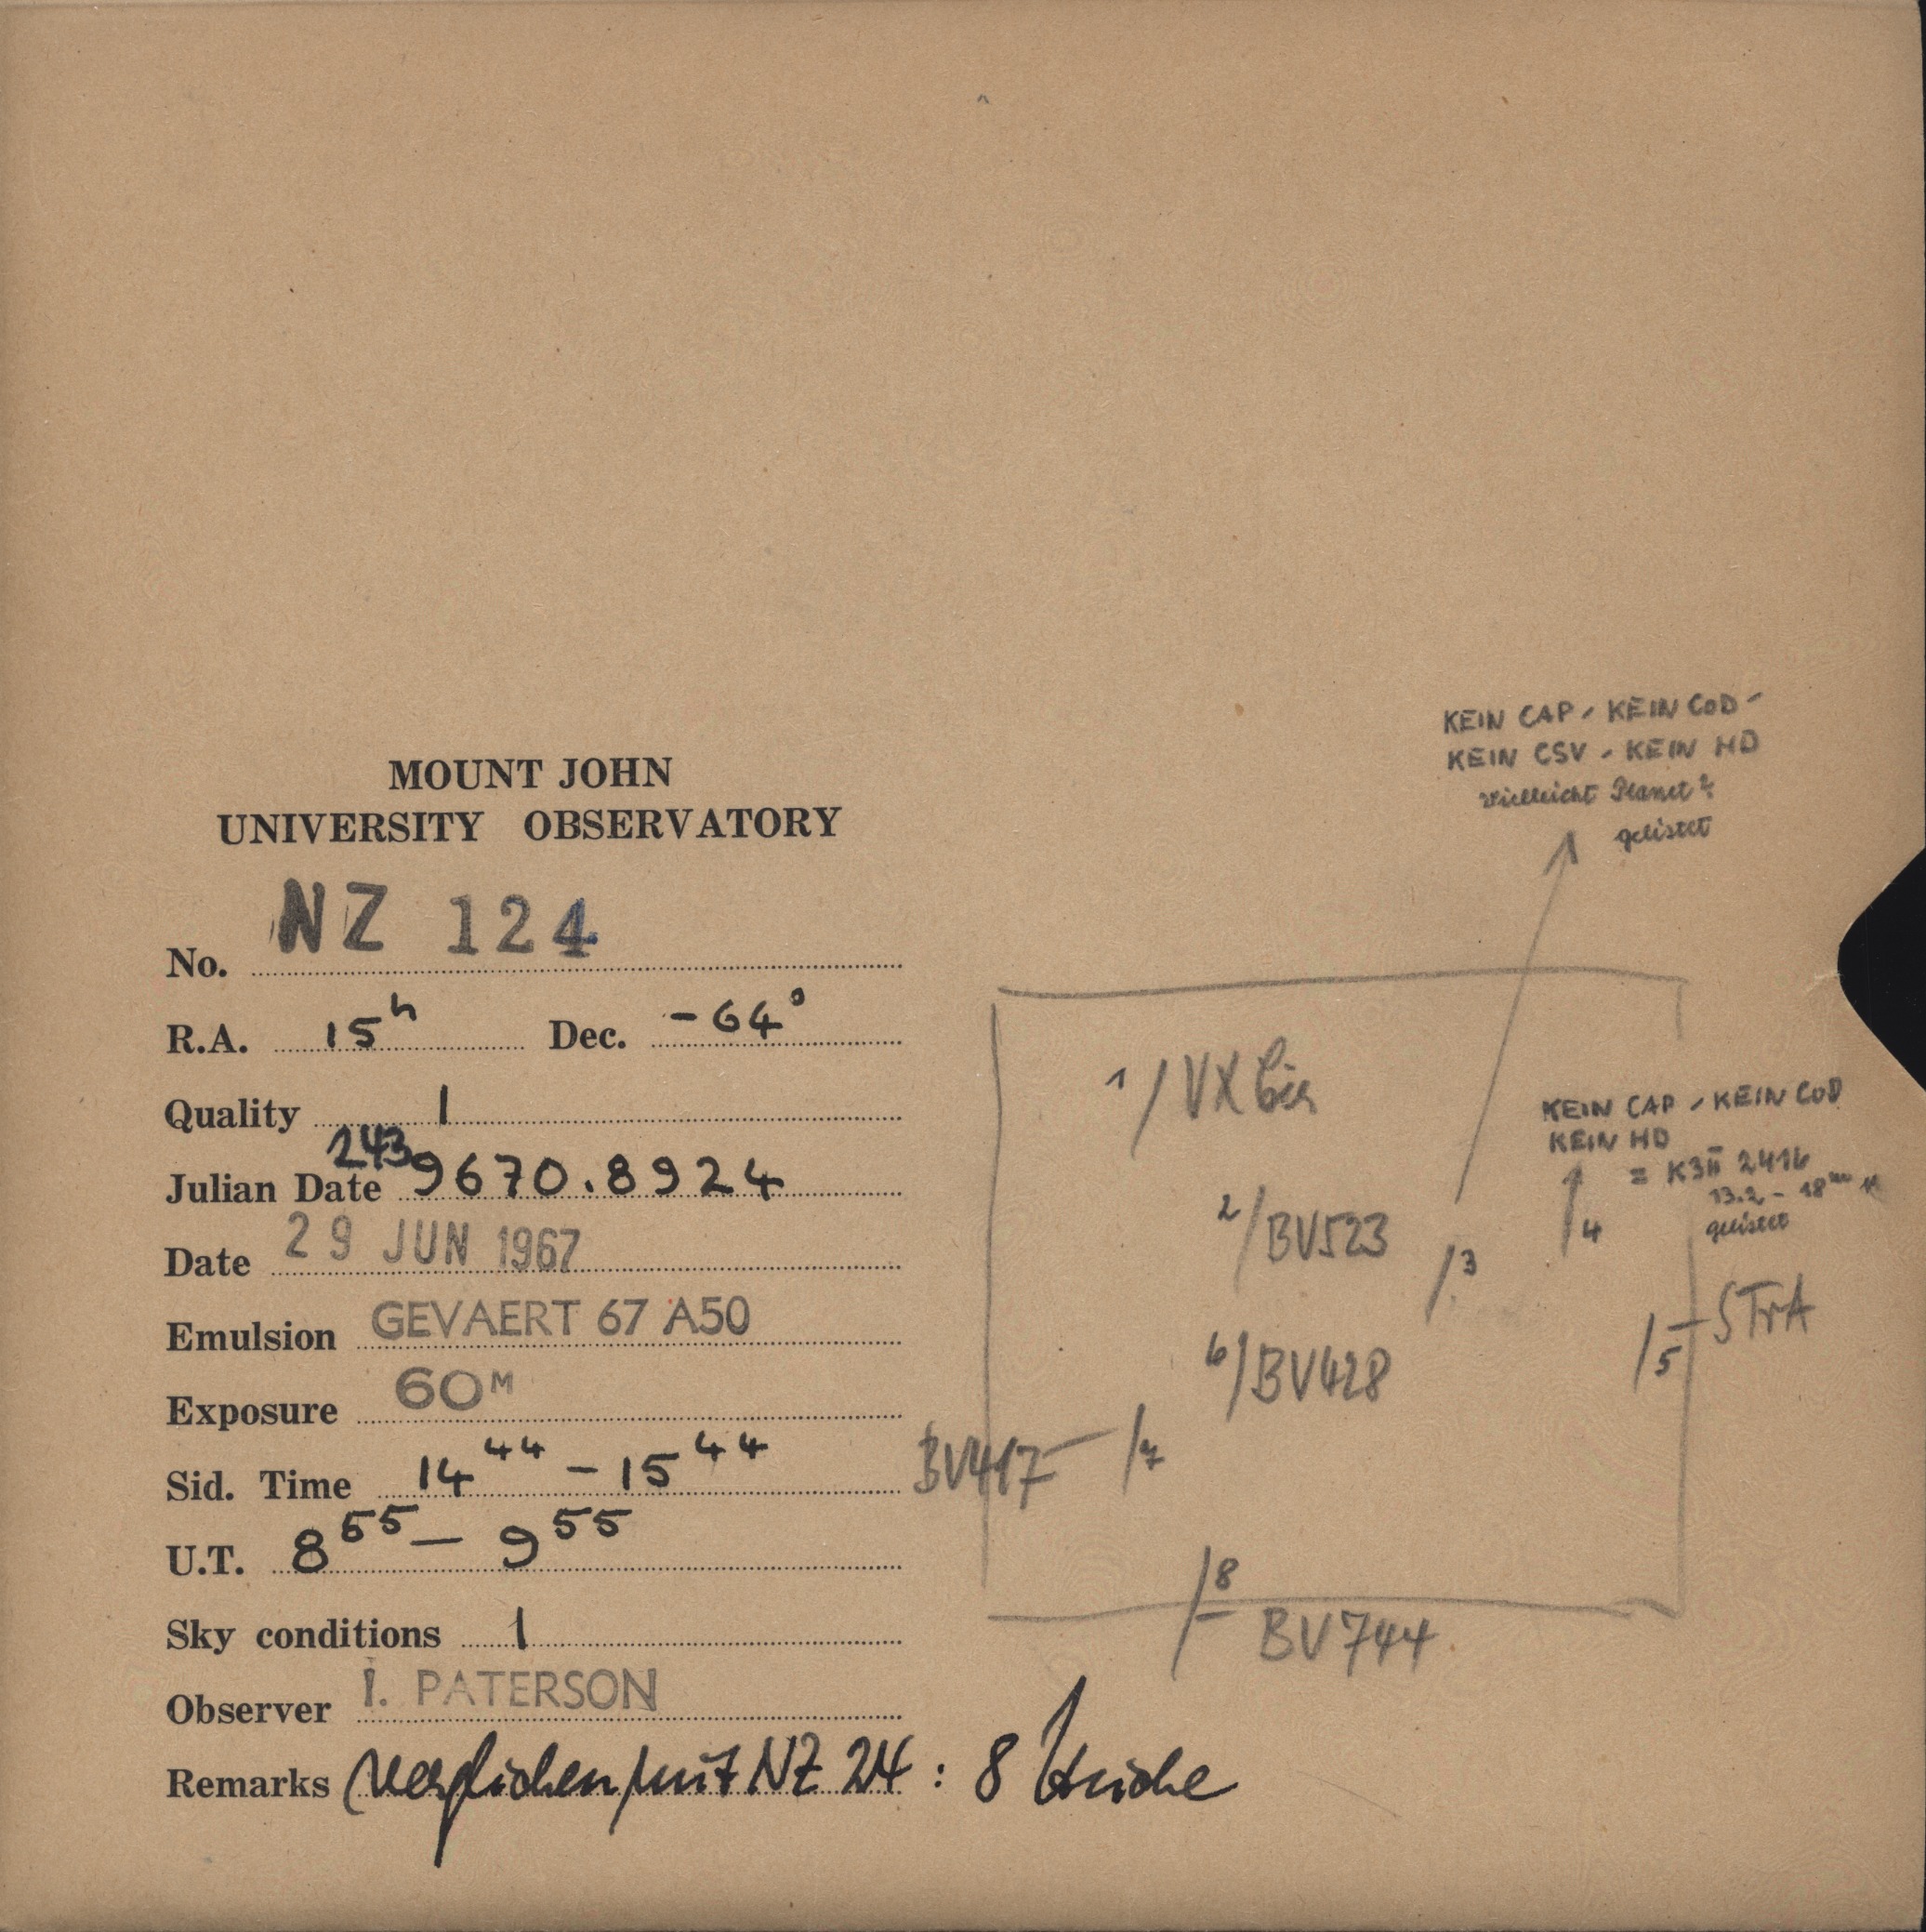 KEIN CAP - KEIN COD -
KEIN CSV - KEIN HD
Vielleicht Planet?
gelistet
MOUNT JOHN
UNIVERSITY OBSERVATORY
No. NZ 124
R.A. 15h Dec. -64°
Quality 1
Julian Date 2439670.8924
Date 29 JUN 1967
Emulsion GEVAERT 67 A50
Exposure 60M
Sid. Time 14 44 - 15 44
U.T. 8 55 - 9 55
Sky conditions 1
Observer I. PATERSON
Remarks verglichen mit NZ 24 : 8 Striche
1/ VX Cir
KEIN CAP - KEIN COD
KEIN HD
= K3II 2416
13.2 - 18m
gelistet
2/ BV523
/3
/4
/5 - S TrA
6/ BV428
BV417 - /7
/8
BV744